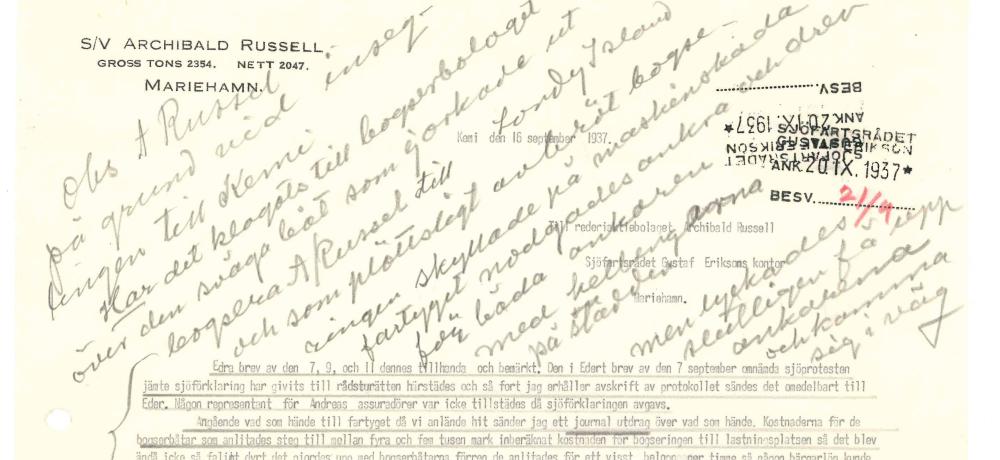 S/V ARCHIBALD RUSSELL
GROSS TONS 2354. NETT 2047.
MARIEHAMN.
Obs A Russel inseg-
på grund vid
lingen till Kemi
Har det klagats till bogserbolaget
över den svåga båt som gjorkade ut
bogsera A/Russel till Londy Island
och som plöttsligt avbröt bogse-
ringen skyllade på maskinskada
fartyget nödgades ankra och drev
för båda ankaren
med hetteng
på stäreden
men lyckades
slutligen få upp
ankarena
och komma
sig i väg
BESV.
SJÖFARTSRÅDET
GUSTAF ERIKSON
ANK. 20.IX.1937
SJÖFARTSRÅDET
GUSTAF ERIKSON
★ ANK. 20.IX.1937 ★
BESV. 21/9
Kemi den 16 september 1937.
Till rederiaktiebolaget Archibald Russell
Sjöfartsrådet Gustaf Eriksons kontor
Mariehamn.
Edra brev av den 7, 9, och 11 dennes tillhanda och bemärkt. Den i Edert brev av den 7 september omnämda sjöprotesten
jämte sjöförklaring har givits till rådsturätten härstädes och så fort jag erhåller avskrift av protokollet sändes det omedelbart till
Eder. Någon representant för Andreas assuradörer var icke tillstädes då sjöförklaringen avgavs.
Angående vad som hände till fartyget då vi anlände hit sänder jag ett journal utdrag över vad som hände. Kostnaderna för de
bogserbåtar som anlitades steg till mellan fyra och fem tusen mark inberäknat kostnaden för bogseringen till lastningsplatsen så det blev
ändå icke så faligt dyrt det gjordes upp med bogserbåtarna förren de anlitades för ett visst